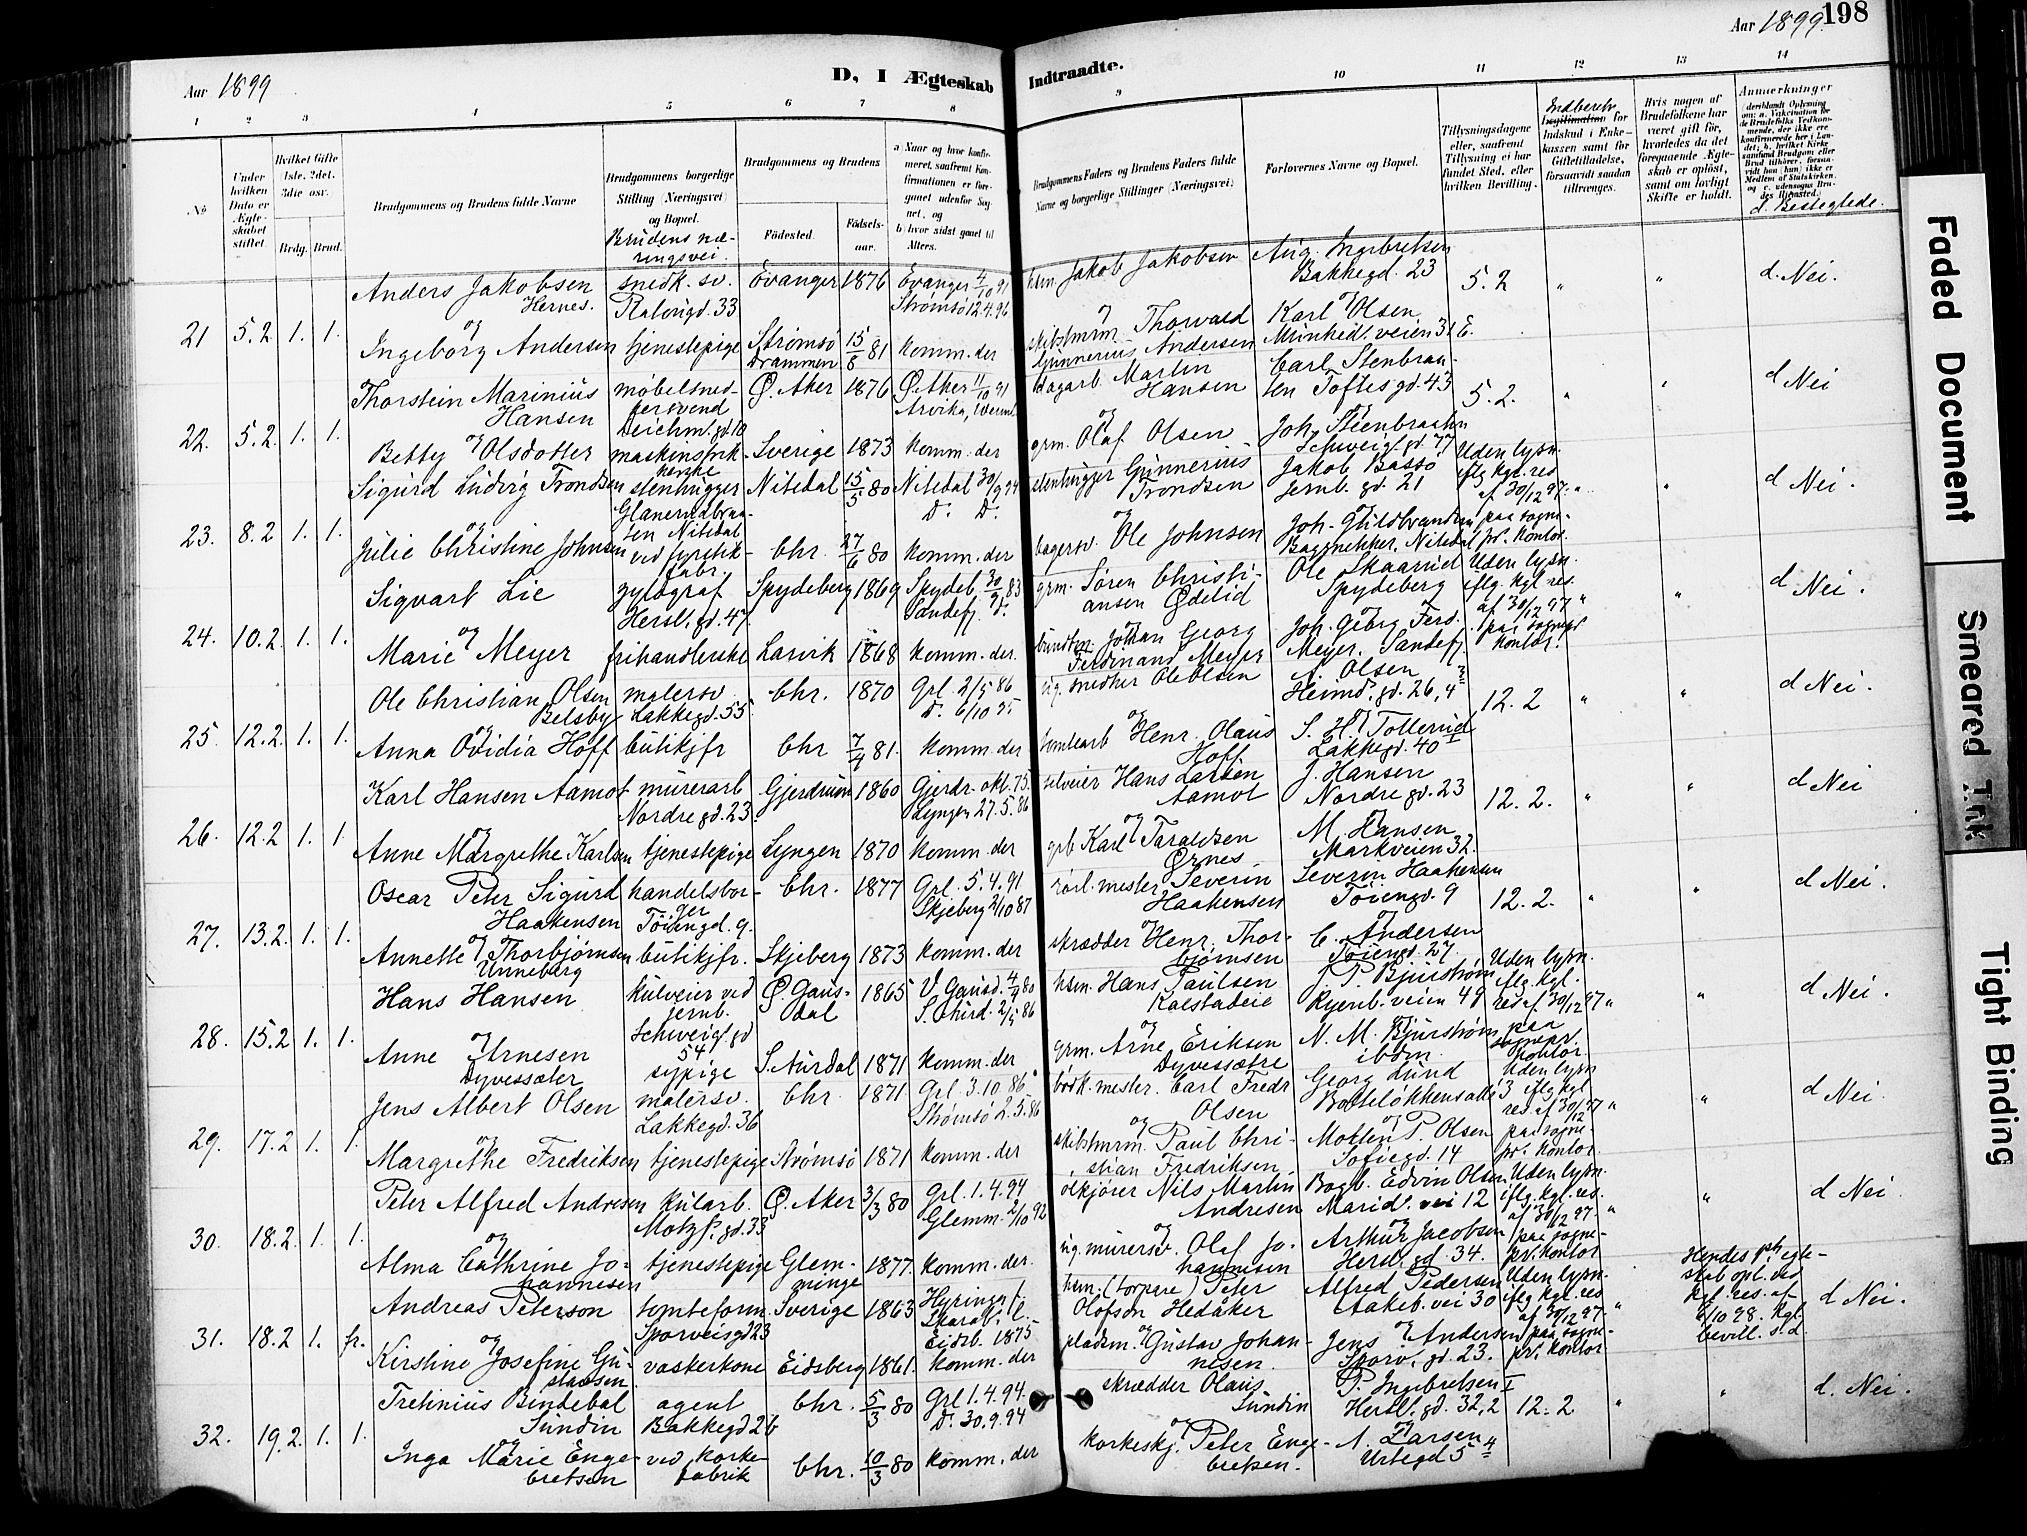 Aar 1899
D, I Ægteskab
Indtraadte.
Aar 1899.
198
1 2 3 4 5 6 7 8 9 10 11 12 13 14
No
Under hvilken Dato er Ægteskabet stiftet.
Hvilket Gifte 1ste, 2det, 3die osv.
Brdg. Brud.
Brudgommens og Brudens fulde Navne
Brudgommens borgerlige Stilling (Næringsvei) og Bopæl.
Brudens næringsvei.
Brudgommens og Brudens
Fødested.
Fødselsaar.
Brudgommens Faders og Brudens Faders fulde Navne og borgerlige Stillinger (Næringsvei)
Forlovernes Navne og Bopæl.
Tillysningsdagene eller, saafremt Tillysning ei har fundet Sted, efter hvilken Bevilling.
Indskud i Enkekassen samt for Giftetilladelse, forsaavidt saadan tiltrænges.
Hvis nogen af Brudefolkene har været gift før, hvorledes da det foregaaende Ægteskab er opløst, samt om lovligt Skifte er holdt.
Anmærkninger
d. Beslegtede.
21 5.2 1. 1.
Anders Jakobsen Hernes. snedk. sv. Evanger 1876 Evanger 4/10 91 Strømsø 12.4.96
hsm. Jakob Jakobsen Aug. Ingebretsen Bakkegd. 23 5.2 " " d. Nei.
og
Ingeborg Andersen tjenestepige Strømsø Drammen 15/8 81 komm. der
Thorvald Gunnerius Andersen Karl Olsen
22. 5.2. 1. 1.
Thorstein Marinius Hansen møbelsnedkersvend Deichm. gd. 10 Ø. Aker 1876 Ø. Aker 11/10 91
dagarb. Martin Hansen Carl Stenbraaten Toftesgd. 43 5.2. " " d Nei
og
Betty Olsdotter Sverige 1873 komm. der
grm. Olaf Olsen Joh. Stenbraaten Schweigs gd. 77
23. 8.2 1. 1.
Sigurd Ludvig Trondsen stenhugger Nitedal 15/5 80 Nitedal 30/9 94 D: D:
stenhugger Gunnerius Trondsen Jakob Basso Jernb. gd. 21 Uden lysn. iflg kgl. res af 30/12 97. " " d Nei.
og
Julie Christine Johnsen ved fyrstik-fabr. Chr. 27/6 80 komm. der
bagersv. Ole Johnsen Joh. Guldbrandsen Nitedal paa sogne-pr. kontor.
24. 10.2. 1. 1.
Sigvart Lie xylograf Hersl. gd. 47 Spydeberg 1869 Spydeb. 30/9 83 Sandefj. D:
grm. Søren Christiansen Ødelid Ole Skaarud Spydeberg Uden lysn. iflg. kgl. res. af 30/12 97 " " d Nei.
og
Marie Meyer frihandlerske Larvik 1868 komm. der.
Johan Georg Ferdinand Meyer Joh. Georg Ferd. Meyer. Sandefj. paa sognepr kontor.
25. 12.2. 1. 1.
Ole Christian Olsen Belsby malersv. Lakkegd. 55. Chr. 1870 Grl. 2/5 86 D. 6/10 95
snedker Ole Olsen A. Olsen Heimd. gd. 26, 4 12.2 " " d Nei.
og
Anna Ovidia Hoff butikjfr Chr 7/4 81. komm. der
tomtearb Henr. Olaus Hoff S. H. Tollerud Lakkegd. 40
26. 12.2 1. 1
Karl Hansen Aamot murerarb Nordregd. 23. Gjerdrum 1860 Gjerdr. okt. 75. Lyngen 27.5.86
selveier Hans Larsen Aamot J. Hansen Nordre gd. 23 12.2. " " d Nei
og
Anne Margrethe Karlsen tjenestepige Lyngen 1870 komm. der
grb Karl Taraldsen Ørnes M. Hansen Markveien 32.
27. 13.2. 1. 1.
Oscar Peter Sigurd Haakensen handelsborger Tøiengd. 9. Chr. 1877 Grl. 5.4.91 Skjeberg 2/10 87
rørl. mester Severin Haakensen Severin Haakensen Tøiengd. 9 12.2. " " d Nei.
og
Annette Thorbjørnsen Unneberg butikjfr. Skjeberg 1873 komm. der
skrædder Henr. Thorbjørnsen C. Andersen Tøiengd. 27.
28. 15.2 1. 1.
Hans Hansen kulveier ved jernb. Schweigs gd 54 Ø. Gausdal 1865 V. Gausd. 4/4 80
hsm. Hans Paulsen J. P. Bjurstrøm Ryenb. veien 49 Uden lysn. iflg. kgl. res af 30/12 97 " " d Nei.
og
Anne Arnesen Dyvesæter sypige S. Aurdal 1871 komm. der
grm. Arne Eriksen Dyvesætre N. M. Bjurstrøm ibdm. paa sognepr. kontor.
29. 17.2 1. 1.
Jens Albert Olsen malersv. Lakkegd. 36 Chr. 1871 Grl. 3.10.86 Strømsø 2.5.86
mester. Carl Fredr Olsen Georg Lund Uden lysn iflg kgl res af 30/12 97 " " d Nei.
og
Margrethe Fredriksen tjenestepige Strømsø 1871 komm. der
skibstmrm. Paul Christian Fredriksen. Morten P. Olsen Sofiegd. 14 paa sogne-pr. kontor.
30. 18.2. 1. 1.
Peter Alfred Andresen kularb. Motzf. gd. 33 Ø. Aker 3/3 80 Grl. 1.4.94 Glemm. 2/10 92
ølkjører Nils Martin Andresen Bogb. Edvin Olsen Marid. vei 12 Uden lysn. iflg. kgl. res. af 30/12 97 " " d Nei.
og
Alma Cathrine Johannesen tjenestepige Glemminge 1877. komm. der.
murersv. Olaf Johannesen Arthur Jacobsen Hersl. gd. 34. paa sogne-pr. kontor
31. 18.2 1. fr.
Andreas Peterson tomteform Sporveisgd 23 Sverige 1863
hsm. (torpare) Peter Olofson Hedåker Alfred Pedersen Aakeb. vei 30 Uden lysn. iflg kgl. res af 30/12 97. "
Hendes ægteskab opl. ved kgl. res. af 6/10 98. Kgl. bevill. s. d. d Nei.
og
Kirstine Josefine Gustavsen vaskerkone Eidsberg 1861. Eidsb. 1875 komm. der
pladsm. Gustav Johannesen. Jens Andersen Sporv. gd. 23. paa sogne-pr. kontor
32. 19.2. 1. 1.
Bindebal Sundin agent Bakkegd 26 Chr. 5/3 80 Grl. 1.4.94. D. 30.9.94
skrædder Olaus Sundin P. Ingebretsen Hersl. gd. 32,2 12.2 " " d. Nei.
og
Inga Marie Engebretsen ved korkefabrik Chr. 10/3 80 komm. der
korkeskj. Peter Engebretsen. A. Larsen Urtegd 5
Faded Document
Smeared Ink
Tight Binding